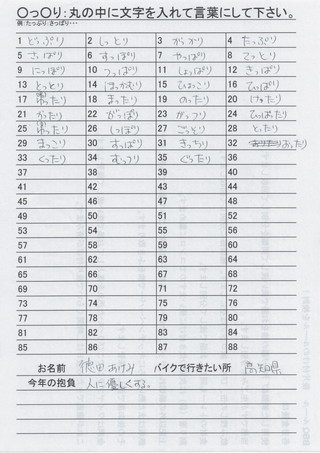 ○っ○り：丸の中に文字を入れて言葉にして下さい。
例：たっぷり：きっぱり・・・
1 どっぷり 2 しっとり 3 がっかり 4 たっぷり
5 さっぱり 6 すっぽり 7 やっぱり 8 てっとり
9 にっぽり 10 つっぱり 11 しょっぱり 12 きっぱり
13 とっとり 14 15 ひょっこり 16
17 18 まったり 19 のったり 20 けったり
21 がったり 22 がっぽり 23 がっつり 24
25 26 しっぽり 27 ごっとり 28 とったり
29 まっこり 30 すっぱり 31 きっちり 32 おったり
33 くったり 34 むっつり 35 ぐったり 36
37 38 39 40
41 42 43 44
45 46 47 48
49 50 51 52
53 54 55 56
57 58 59 60
61 62 63 64
65 66 67 68
69 70 71 72
73 74 75 76
77 78 79 80
81 82 83 84
85 86 87 88
お名前 徳田あけみ バイクで行きたい所 高知県
今年の抱負 人に優しくする。